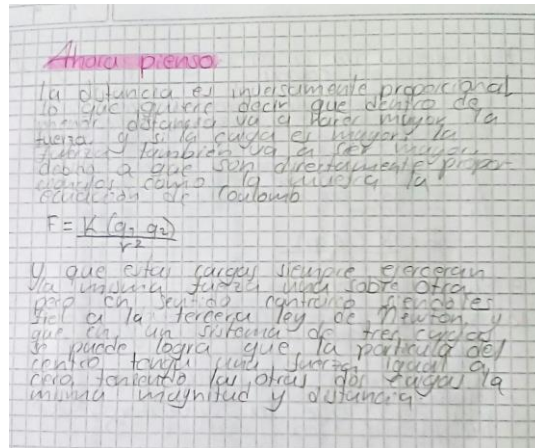 Ahora pienso
la distancia es inversamente proporcional
lo que quiere decir que dentro de
menor distancia va a haber mayor la
fuerza y si la carga es mayor la
fuerza tambien va a ser mayor
debido a que son directamente propor-
cionales como la muestra la
ecuacion de Coulomb
F = K (q1 q2)
r2
Y que estas cargas siempre ejerceran
la misma fuerza una sobre otra
pero en sentido contrario siendoles
fiel a la tercera ley de Newton y
que en un sistema de tres cargas
se puede logra que la particula del
centro tenga una fuerza igual a
cero teniendo las otras dos cargas la
misma magnitud y distancia.